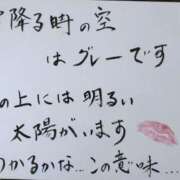 降る時の空
はグレーです
の上には明るい
太陽がいます
つかるかな…この意味…